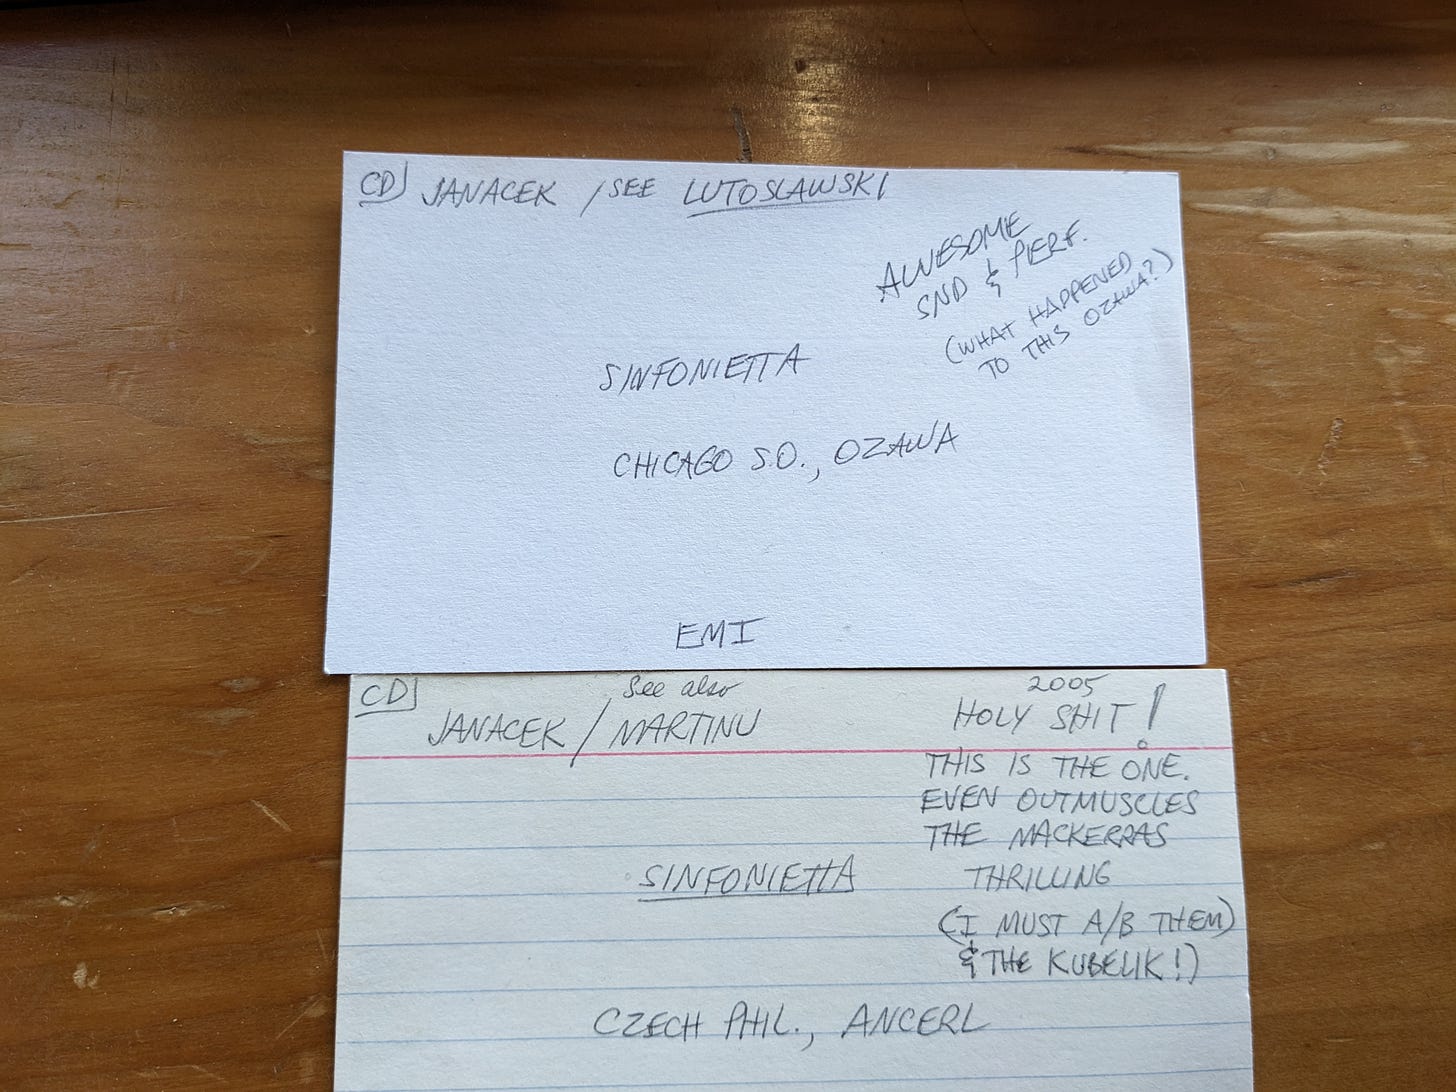 CD JANACEK / SEE LUTOSLAWSKI
AWESOME
SND & PERF.
(WHAT HAPPENED
TO THIS OZAWA?)
SINFONIETTA
CHICAGO S.O., OZAWA
EMI
CD
See also
JANACEK / MARTINU
2005
HOLY SHIT!
THIS IS THE ONE.
EVEN OUTMUSCLES
THE MACKERRAS
THRILLING
(I MUST A/B THEM)
& THE KUBELIK!)
SINFONIETTA
CZECH PHIL., ANCERL